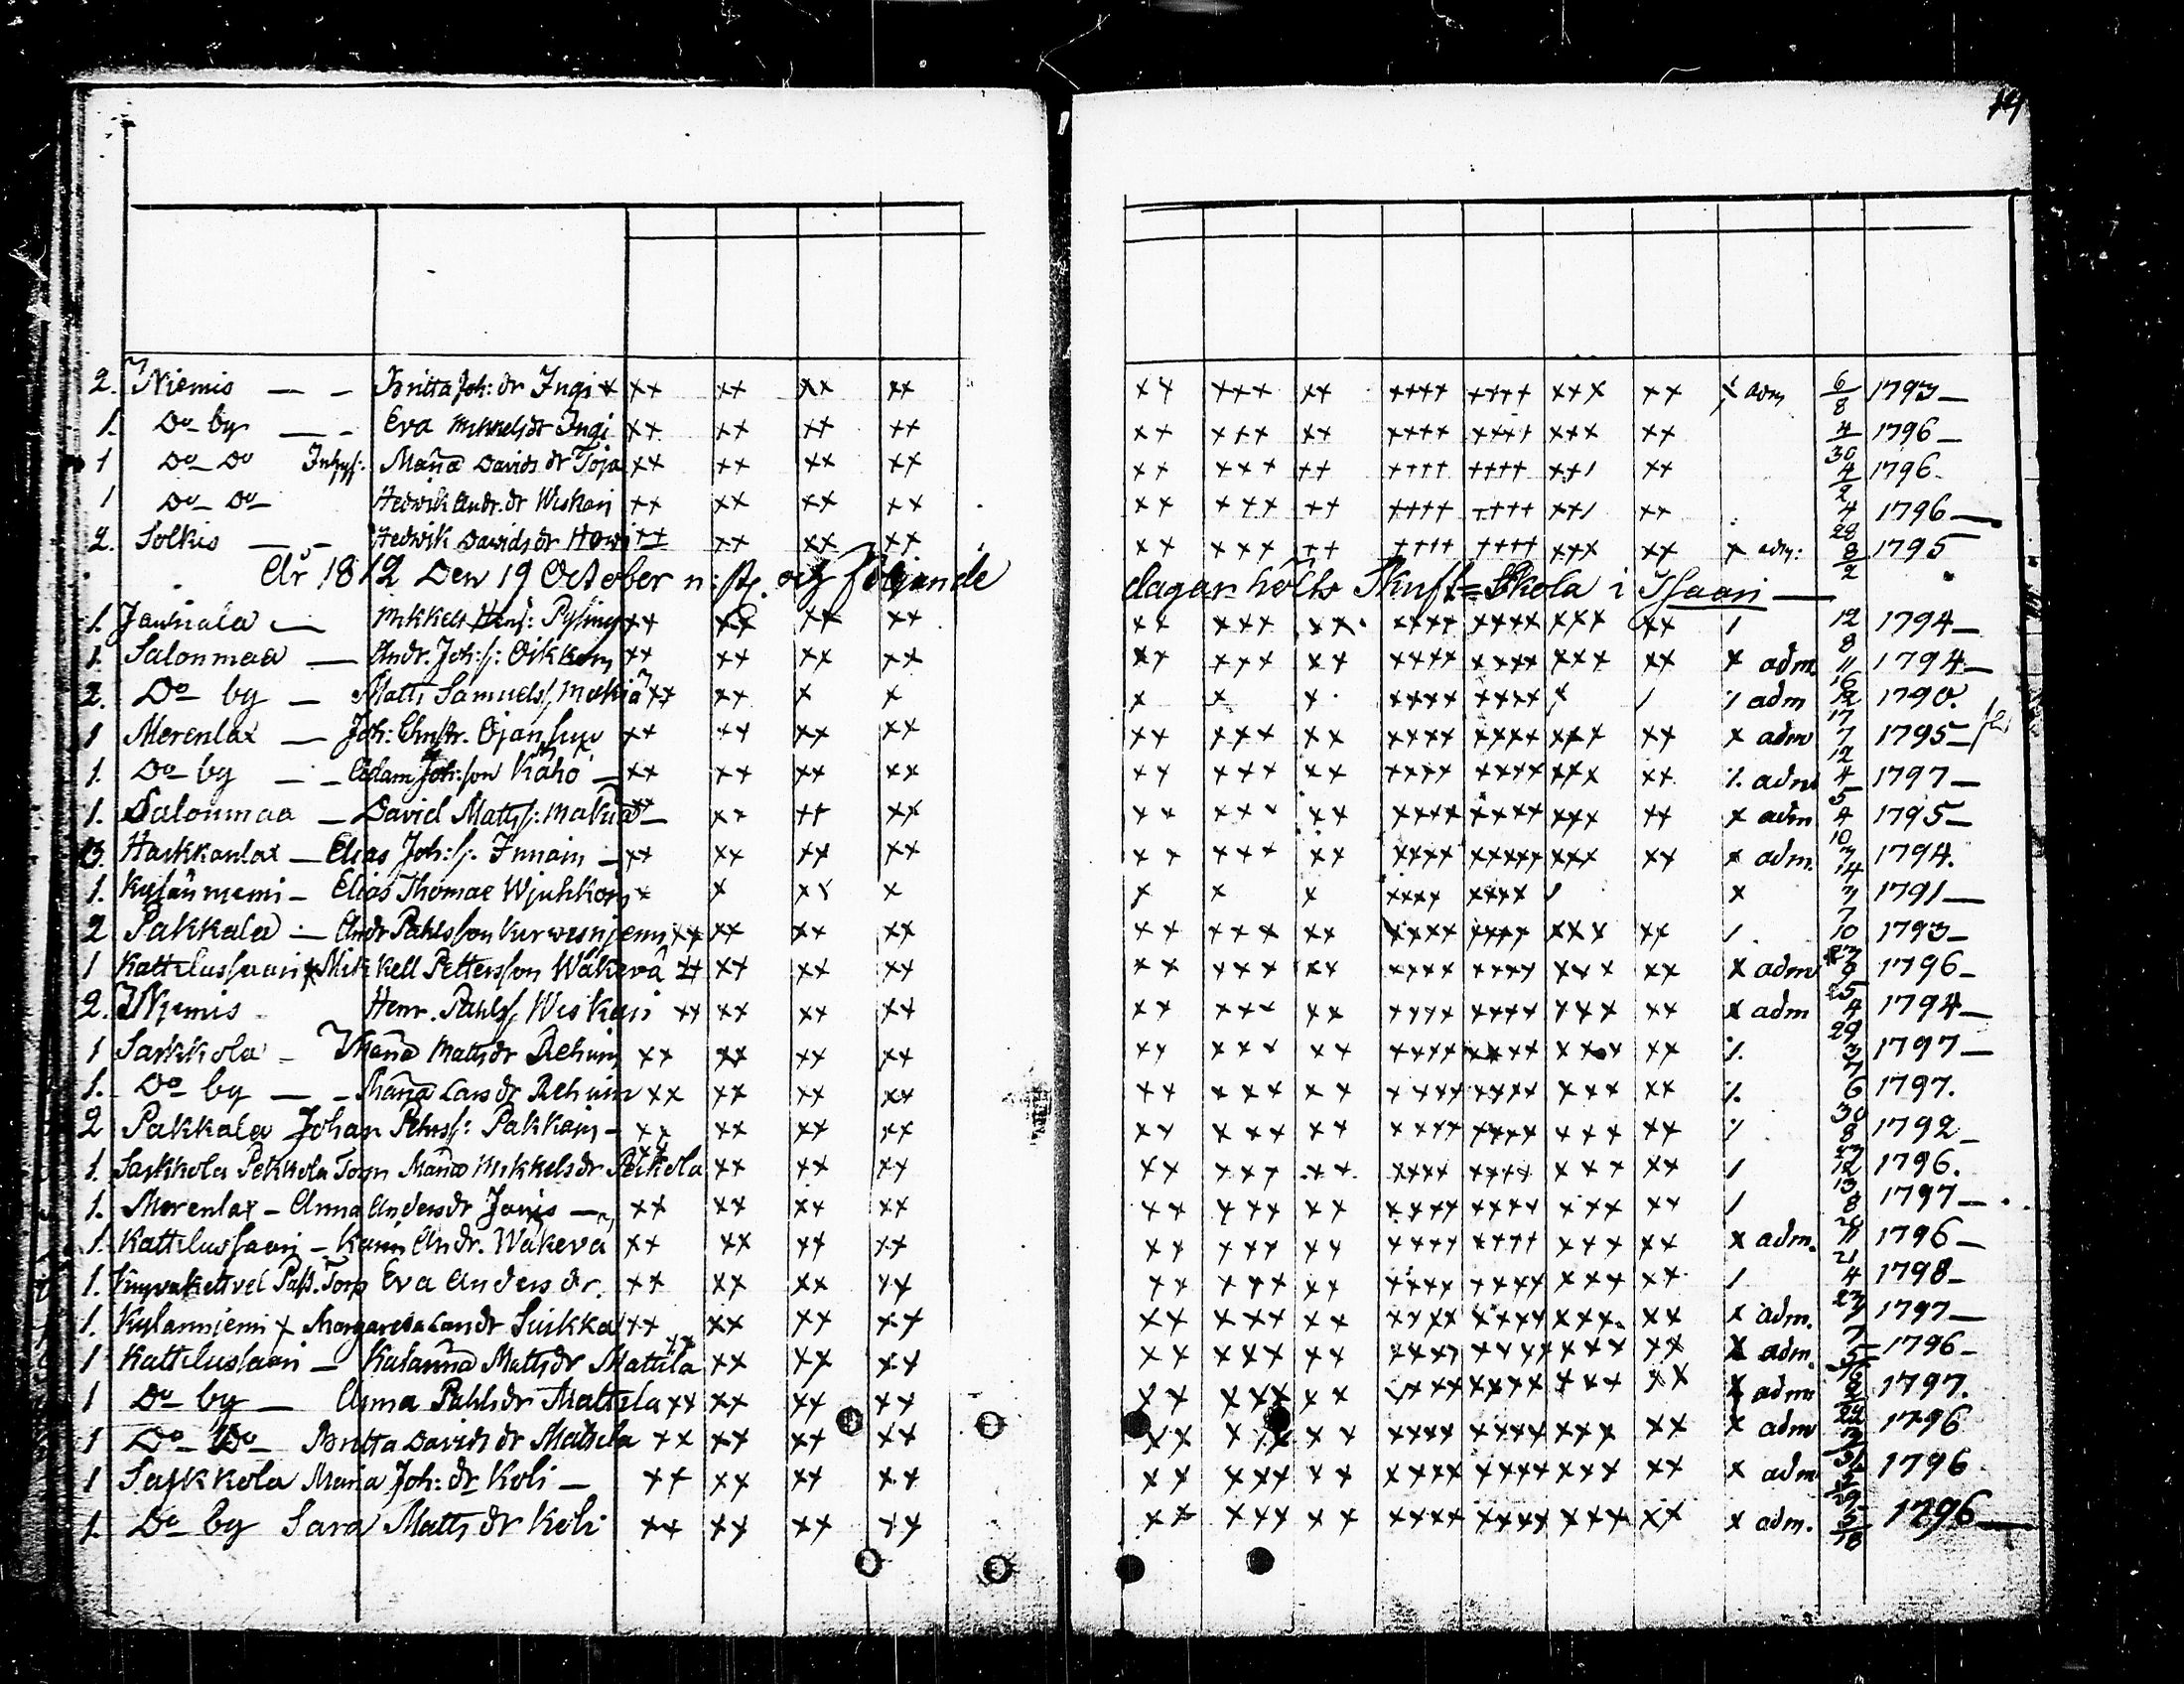 19
2. Niemis — — Britta Joh: dr Ingi x xx xx xx xx xx xxx xx xxxx xxxx xxx xx x adm 6/8 1793 —
1. Do by — - Eva Mikkels dr Ingi xx xx xx xx xx xxx xx xxxx xxxx xxx xx 4 1796 —
1 Do — Do Inhys: Maria Davids dr Toja xx xx xx xx xx xxx xx xxxx xxxx xx/ xx 30/4 1796.
1 Do — Do Hedwik Andr. dr Wiskari xx xx xx xx xx xxx xx xxxx xxxx xx/ xx 2/4 1796 —
2. Solkis — - Hedwik Davids dr xx xx xx xx xx xxx xx xxxx xxxx xxx xx x adm: 28/8 1795
År 1812 Den 19 October n: st. och följande dagar hölts Skrift=Skola i —
1. — Mikkel xx xx xx xx xx xxx xx xxxx xxxx xxx xx / 12 1794 —
1. Salonmaa — Andr. Joh:s: Oikkon xx xx xx xx xx xxx xx xxxx xxxx xxx xx x adm. 8/11 1794 —
2. Do by — Matts Samuels: xx xx x x x x x xxxx xxxx x / / adm 16/12 1790.
1 Merenlax — Joh: Christr. Ojansuu xx xx xx xx xx xxx xx xxxx xxxx xxx xx x adm 17/7 1795 —
1. Do by — - Adam Joh:son Kähö — xx xx xx xx xx xxx xx xxxx xxxx xxx xx /. adm 12/4 1797 —
1. Salonmaa — David Matts: — xx xx xx xx xxx xx xxxx xxxx xxx xx x adm 5/4 1795 —
3. — Elias Joh:s: — xx xx xx xx xx xxx xx xxxx xxxxx xxx xx x adm. 10/3 1794.
1. — Elias Thomae x x xx x x x x xxxx xxxx / x 14/3 1791 —
2 Pakkala — Andr Påhlsson xx xx xx xx xx xxx xx xxxx xxxx xxx xx / 7/10 1793 —
1 Kattelussaari x Mikkell Pettersson Wäkevä xx xx xx xx xx xxx xx xxxx xxxx xxx xx x adm 1796 —
2. Niemis Henr. Påhls: Wiskari xx xx xx xx xx xxx xx xxxx xxxx xxx xx x adm 25/4 1794 —
1 Sarkkola — Maria Matts dr xx xx xx xx xx xxx xx xxxx xxxx xxx xx /. 29/3 1797 —
1. Do by — - Maria Lars dr xx xx xx xx xx xxx xx xxxx xxxx xxx xx /. 6 1797.
2 Pakkala Johan Pehrs: — xx xx xx xx xx xxx xx xxxx xxxx xxx xx / 30/8 1792 —
1. Sarkkola Pekkola Torp Maria Mikkels dr xx xx xx xx xx xxx xx xxxx xxxx xxx xx / 12 1796.
1. Merenlax — Anna Anders dr — xx xx xx xx xx xxx xx xxxx xxxx xxx xx / 13/8 1797 —
1. Kattelussaari — Karin Andr. Wäkevä xx xx xx xx xx xxx xx xxxx xxxx xxx xx x adm. 1796 —
1. Torp Eva Anders dr. xx xx xx xx xx xxx xx xxxx xxxx xxx xx / 21/4 1798 —
1. Kylanniemi x Margareta Lars dr Suikka xx xx xx xx xx xxx xx xxxx xxxx xxx xx x adm. 1797 —
1 Kattelussaari — Katarina Matts dr Mattila xx xx xx xx xx xxx xx xxxx xxxx xxx xx x adm. 1796 —
1 Do by — Anna Påhls dr Mattila xx xx xx xx xx xxx xx xxxx xxxx xxx xx x adm 1797.
1 Do — Do — Britta Davids dr Mattila xx xx xx xx xx xxx xx xxxx xxxx xxx xx x adm 1796
1 Sarkkola Maria Joh: dr Koli — xx xx xx xx xx xxx xx xxxx xxxx xxx xx x adm 1796
1 Do by Sara Matts dr Koli xx xx xx xx xx xxx xx xxxx xxxx xxx xx x adm. 1796 —